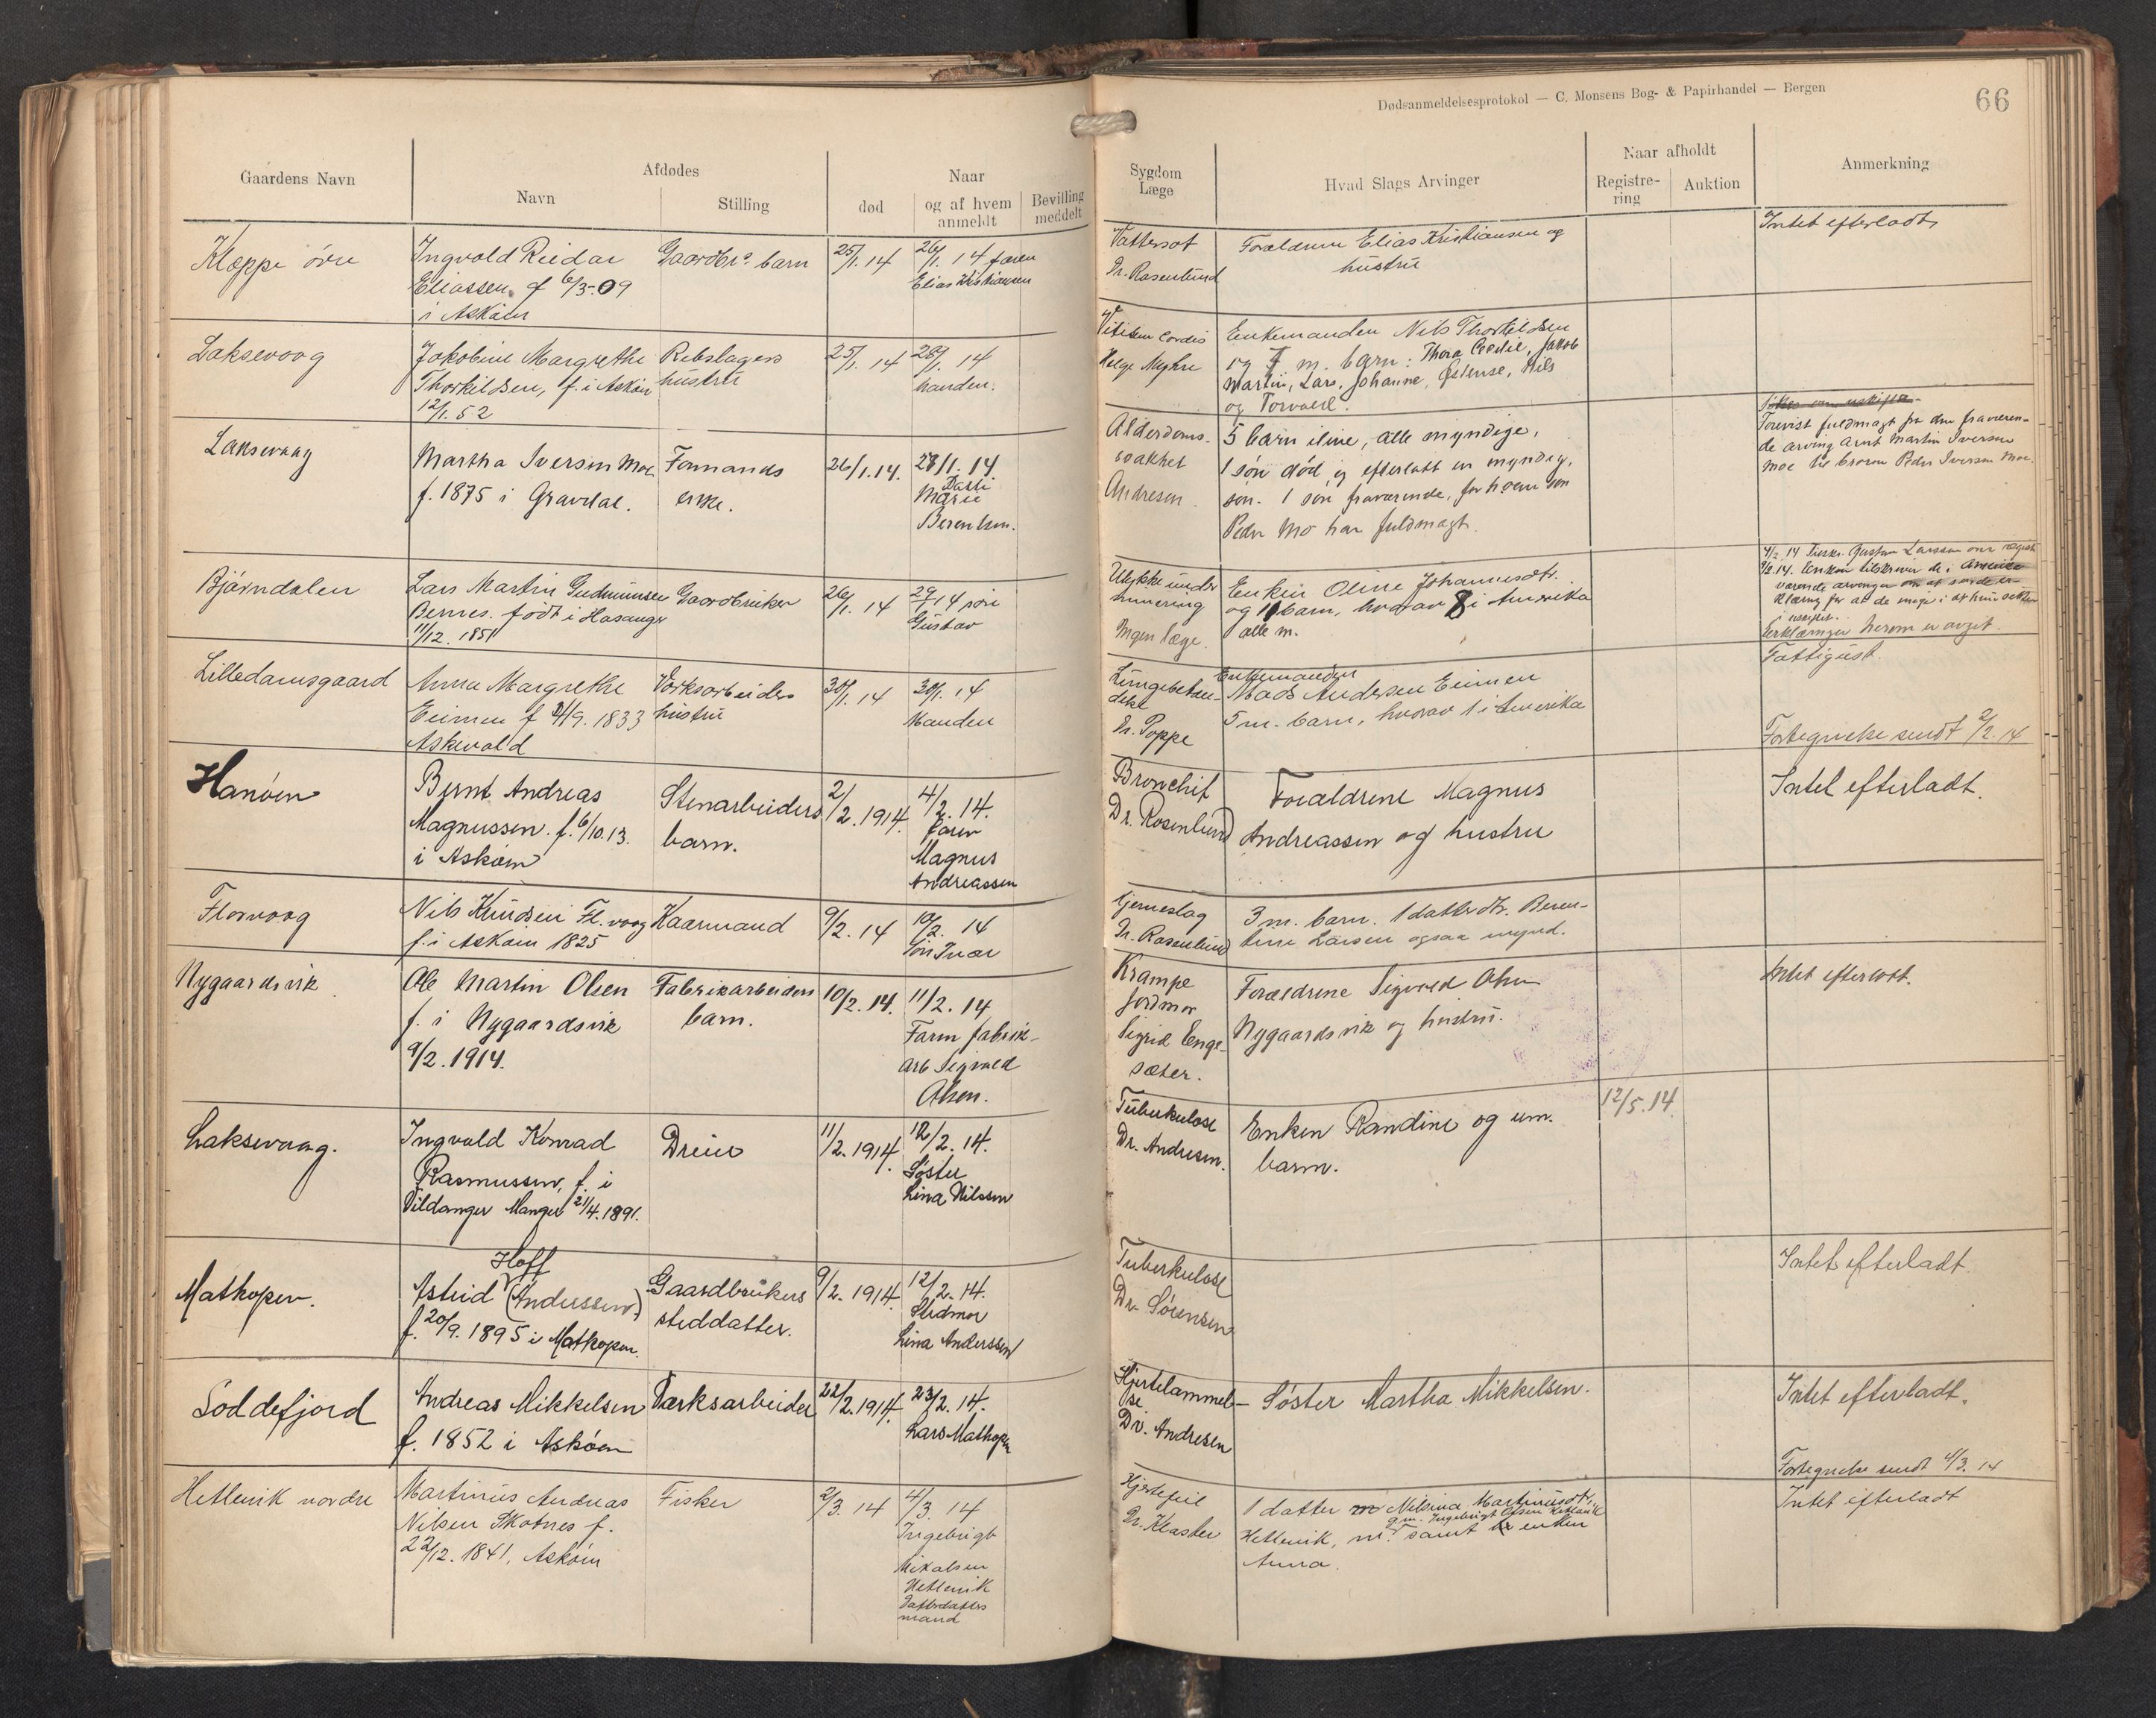 Dødsanmeldelsesprotokol — C. Monsens Bog- & Papirhandel — Bergen
66
Gaardens Navn
Afdødes
Navn
Stilling
død
Naar
og af hvem
anmeldt
Bevilling
meddelt
Sygdom
Læge
Hvad Slags Arvinger
Naar afholdt
Registre-
ring
Auktion
Anmerkning
Kleppe øvre
Ingvald Reidar
Eliassen f 6/3-09
i Askøen
Gaardbrs. barn
25/1. 14
26/1. 14 faren
Elias Kristiansen
Vattersot
Dr. Rosenlund
Forældrene Elias Kristiansen og
hustru
Intet efterladt
Laksevaag
Jakobine Margrethe
Thorkildsen, f. i Askøen
12/1. 52
Rebslagers
hustru
25/1. 14
28/1. 14
manden.
Vitium cordis
Helge Myhre
Enkemanden Nils Thorkildsen
og 7 m. barn: Thora Cecilie, Jakob
Martin, Lars, Johanne, Nils
og Torvald.
Laksevaag
Martha Iversen Moe
f. 1875 i Gravdal.
Formands
enke.
26/1. 14.
28/1. 14
Datti
Marie
Berentsen.
Alderdoms-
svakhet
Andresen
5 barn ilive, alle myndige,
1 søn død, og efterlatt en myndig
søn. 1 søn fraværende, for hvem søn
Peder Mo har fuldmagt.
Forevist fuldmagt fra den fraværen-
de arving Arnt Martin Iversen
Moe til broren Peder Iversen Moe.
Bjørndalen
Lars Martin Gudmunsen
Bernes. født i Hosanger
11/12. 1851
Gaardbruker
26/1. 14
29/1 14 søn
Gustav
Ulykke under
minering
Ingen læge.
Enken Oline Johannesdtr.
og 11 barn, hvorav 8 i Amerika
alle m.
4/2 14 Tilskr. Gustav Larssen om
9/2. 14. Enken tilskriver de i Amerika
værende arvinger om at sende er-
klæring for at de
i uskiftet.
Erklæringer herom er avgit.
Lilledamsgaard
Anna Margrethe
Eimen f 21/9. 1833
Askevold
Verksarbeiders
hustru
30/1. 14
30/1. 14
Manden
Lungebetæn-
delse
Dr. Poppe
Enkemanden
Mads Andersen Eimen
5 m. barn, hvorav 1 i Amerika
Fattigust.
Fortegnelse sendt 2/2. 14
Hanøen
Bernt Andreas
Magnussen. f. 6/10. 13.
i Askøen
Stenarbeiders
barn.
2/2. 1914.
4/2. 14.
faren
Magnus
Andreassen
Bronchit
Dr. Rosenlund
Forældrene Magnus
Andreassen og hustru
Intet efterladt.
Florvaag
Nils Knudsen Fl.vaag
f. i Askøen 1825
Kaarmand
9/2. 14
10/2. 14
søn Ivar
Hjerneslag
Dr. Rosenlund
3 m. barn. 1 datter dtr. Beren-
tine Larsen ogsaa mynd.
Nygaardsvik
Ole Martin Olsen
f. i Nygaardsvik
9/2. 1914.
Fabrikarbeiders
barn.
10/2. 14.
11/2. 14
Faren fabrik-
arb Sigvald
Olsen.
Krampe
Jordmor
Sigrid Enge-
sæter.
Forældrene Sigvald Olsen
Nygaardsvik og hustru.
Intet efterlatt.
Laksevaag.
Ingvald Konrad
Rasmussen, f. i
Vildanger Manger 21/4. 1891.
Dreier
11/2. 1914.
12/2. 14.
Søster
Lina Nilssen
Tuberkulose
Dr. Andresen.
Enken Randine og um.
barn.
12/5. 14.
Mathopen.
Hoff
Astrid (Anderssen)
f. 20/9. 1895 i Mathopen.
Gaardbrukers
steddatter.
9/2. 1914.
12/2. 14.
Stedmor
Lina Anderssen
Tuberkulose
Dr. Sørensen
Intet efterladt.
Loddefjord
Andreas Mikkelsen
f. 1852 i Askøen
Værksarbeider
22/2. 1914.
23/2. 14.
Lars Mathopen
Hjertelammel-
se
Dr. Andresen
Søster Martha Mikkelsen.
Intet efterladt.
Fortegnelse sendt 4/3. 14
Hetlevik nordre
Martinus Andreas
Nilsen Skotnes f.
22/12. 1841, Askøen
Fisker
2/3. 14
4/3. 14
Ingebrigt
Mikalsen
Hetlevik
Datterdatters
mand
Hjertefeil
Dr. Klaster
1 datter Nilsina Martinusdtr,
g.m. Ingebrigt Olsen Hetlevik
Hetlevik, m. samt enken
Anna.
Intet efterladt